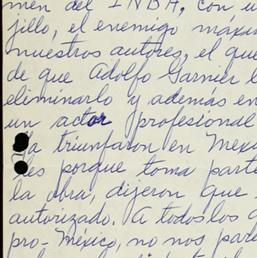 men del INBA, con u
jillo, el enemigo máxim
nuestros autores, el que
de que Adolfo Garnier l
eliminarlo y además en
un actor profesional
Ya triunfaron en Mexi
les porque toma parte
la obra, dijeron que
autorizado. A todos los
pro-México, no nos par